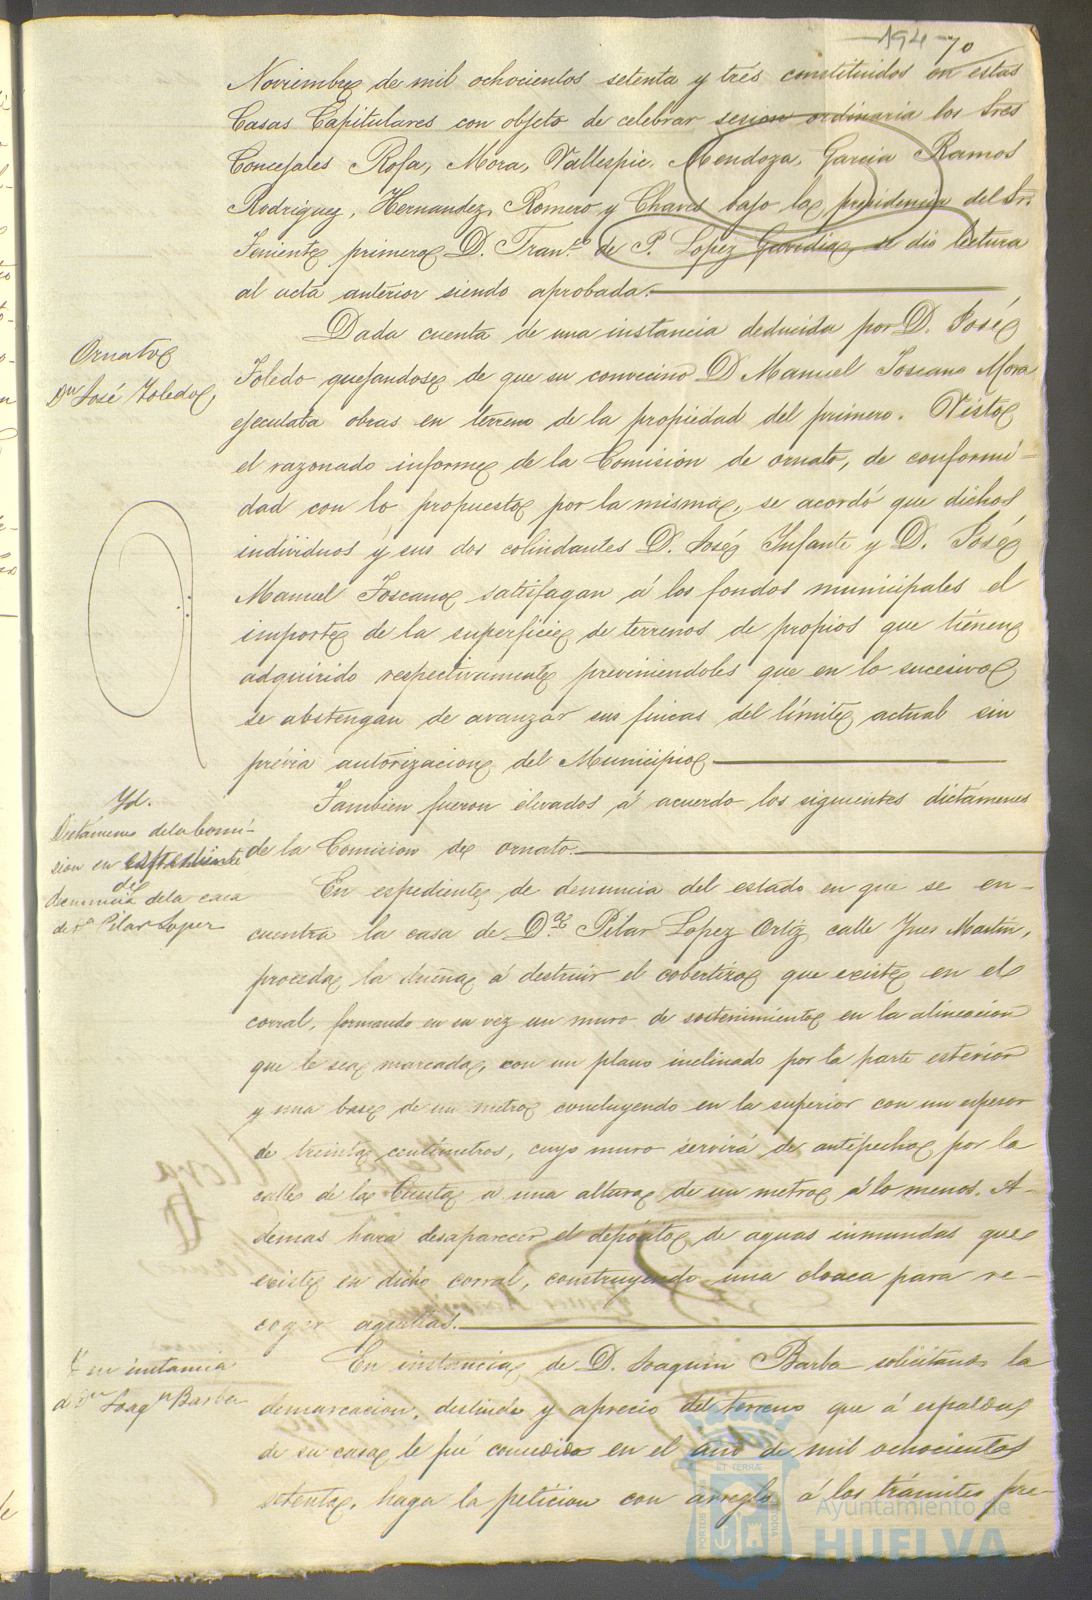 194 70
Noviembre de mil ochocientos setenta y tres constituidos en estas
Casas Capitulares con objeto de celebrar sesion ordinaria los Sres
Concejales Rofa, Mora, Vallespic. Mendoza, Garcia Ramos
Rodriguez, Hernandez, Romero y Chaves bajo la presidencia del Sr.
Teniente primero D. Fran.co de P. Lopez Gavidia, se dio lectura
al acta anterior siendo aprobada.
Ornato
Dn José Toledo,
Dada cuenta de una instancia deducida por D. José
Toledo quejandose de que su convecino D Manuel Toscano Mora
ejecutaba obras en terreno de la propiedad del primero. Visto
el razonado informe de la Comision de ornato, de conformi-
dad con lo propuesto por la misma, se acordó que dichos
individuos y sus dos colindantes D. José Infante y D. José
Manuel Toscano satisfagan á los fondos municipales el
importe de la superficie de terrenos de propios que tienen
adquirido respectivamente previniendoles que en lo sucesivo
se abstengan de avanzar sus fincas del límite actual sin
prévia autorizacion del Municipio
Yd.
Dictámenes de la Comi-
sion en espediente
de
denuncia de la casa
de Da Pilar Lopez
Tambien fueron elevados á acuerdo los siguientes dictámenes
de la Comision de ornato.
En espediente de denuncia del estado en que se en-
cuentra la casa de D.a Pilar Lopez Ortiz calle Ynes Martin,
proceda la dueña á destruir el cobertizo que existe en el
corral, formando en su vez un muro de sostenimiento en la alineacion
que le sea marcada, con un plano inclinado por la parte esterior
y una base de un metro concluyendo en la superior con un espesor
de treinta centímetros, cuyo muro servirá de antipecho por la
calle de la Cuesta á una altura de un metro á lo menos. A-
demas hará desaparecer el depósito de aguas inmundas que
existe en dicho corral, construyendo una cloaca para re-
coger aquellas.
Yd en instancia
de Dn Joaqn Barba
En instancia de D. Joaquin Barba solicitando la
demarcacion, deslinde y aprecio del terreno que á espaldas
de su casa le fué concedido en el año de mil ochocientos
setenta, haga la peticion con arreglo á los trámites pre-
Ayuntamiento de
HUELVA